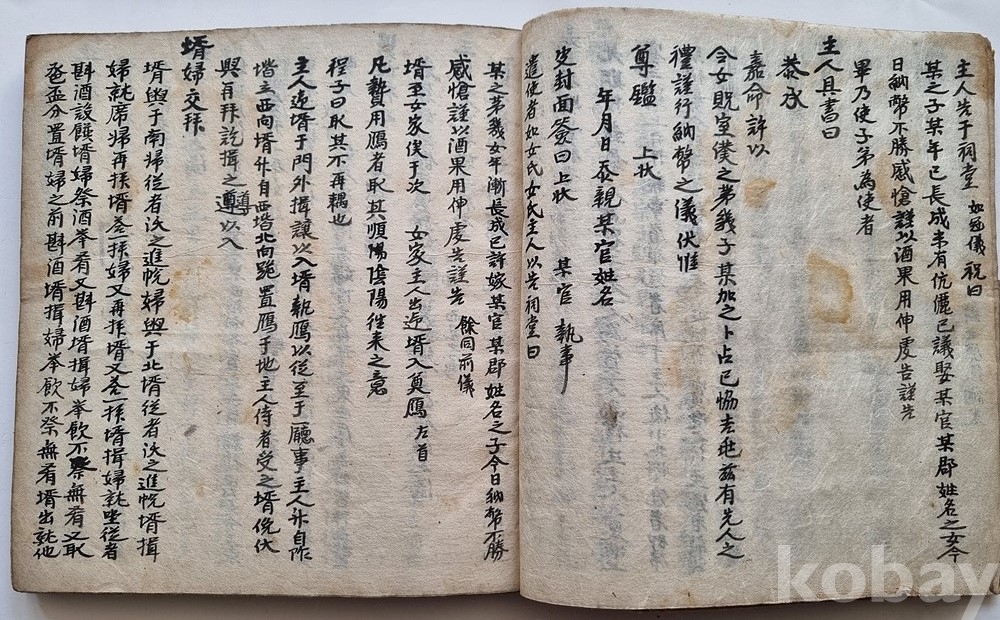 主人告于祠堂 如冠儀祝曰
某之子某年已長成未有伉儷已議娶某官某郡姓名之女今
日納幣不勝感愴謹以酒果用伸虔告謹告
畢乃使子弟為使者
主人具書曰
恭承
嘉命許以
令女貺室僕之弟幾子某加之卜占已恊吉兆玆有先人之
禮謹行納幣之儀伏惟
尊鑑 上狀
年月日忝親某官姓名
皮封面簽曰上狀 某官 執事
遣使者如女氏女氏主人以告祠堂曰
某之第幾女年漸長成已許嫁某官某郡姓名之子今日納幣不勝
感愴謹以酒果用伸虔告謹告 餘同前儀
壻至女家俟于次 女家主人出迎壻入奠鴈左首
凡贄用鴈者取其順陽陰陽徃来之意
程子曰取其不再耦也
主人迎壻于門外揖讓以入壻執鴈以從至于廳事主人升自阼
堦立西向壻升自西堦北向跪置鴈于地主人侍者受之壻俛伏
興再拜訖揖之導以入
壻婦交拜
壻輿于南婦從者沃之進帨婦輿于北壻從者沃之進帨壻揖
婦就席婦再拜壻荅拜婦又再拜壻又荅拜壻揖婦就坐從者
斟酒設饌壻婦祭酒举肴又斟酒壻揖婦举飲不祭無肴又取
巹盃分置壻婦之前斟酒壻揖婦举飲不祭無肴壻出就他
kobay